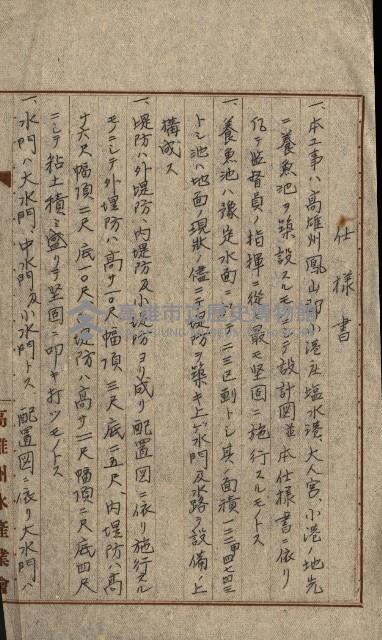 仕様書
一、本工事ハ高雄州鳳山郡小港庄塩水港、大人宮、小港ノ地先
ニ養魚池ヲ築設スルモノニテ設計図並本仕様書ニ依リ
仍テ監督員ノ指揮ニ従ヒ最モ堅固ニ施行スルモノトス
一、養魚池ハ豫定水面
トシ池ハ地面ノ現状ノ儘ニテ堤防ヲ築キ上ゲ水門及水路ヲ設備ノ上
構成ス
一、堤防ハ外堤防、内堤防及小堤防ヨリ成リ配置図ニ依リ施行スル
モノニシテ外堤防ハ高サ一〇尺幅頂三尺底一五尺、内堤防ハ高
サ六尺幅頂二尺底一〇尺小堤防ハ高サ二尺幅頂二尺底四尺
ニシテ粘土積ミ盛リテ堅固ニ叩キ打ツモノトス
一、水門ハ大水門、中水門及小水門トス配置図ニ依リ大水門ハ
高雄州水産業會
高雄市立歴史博物館